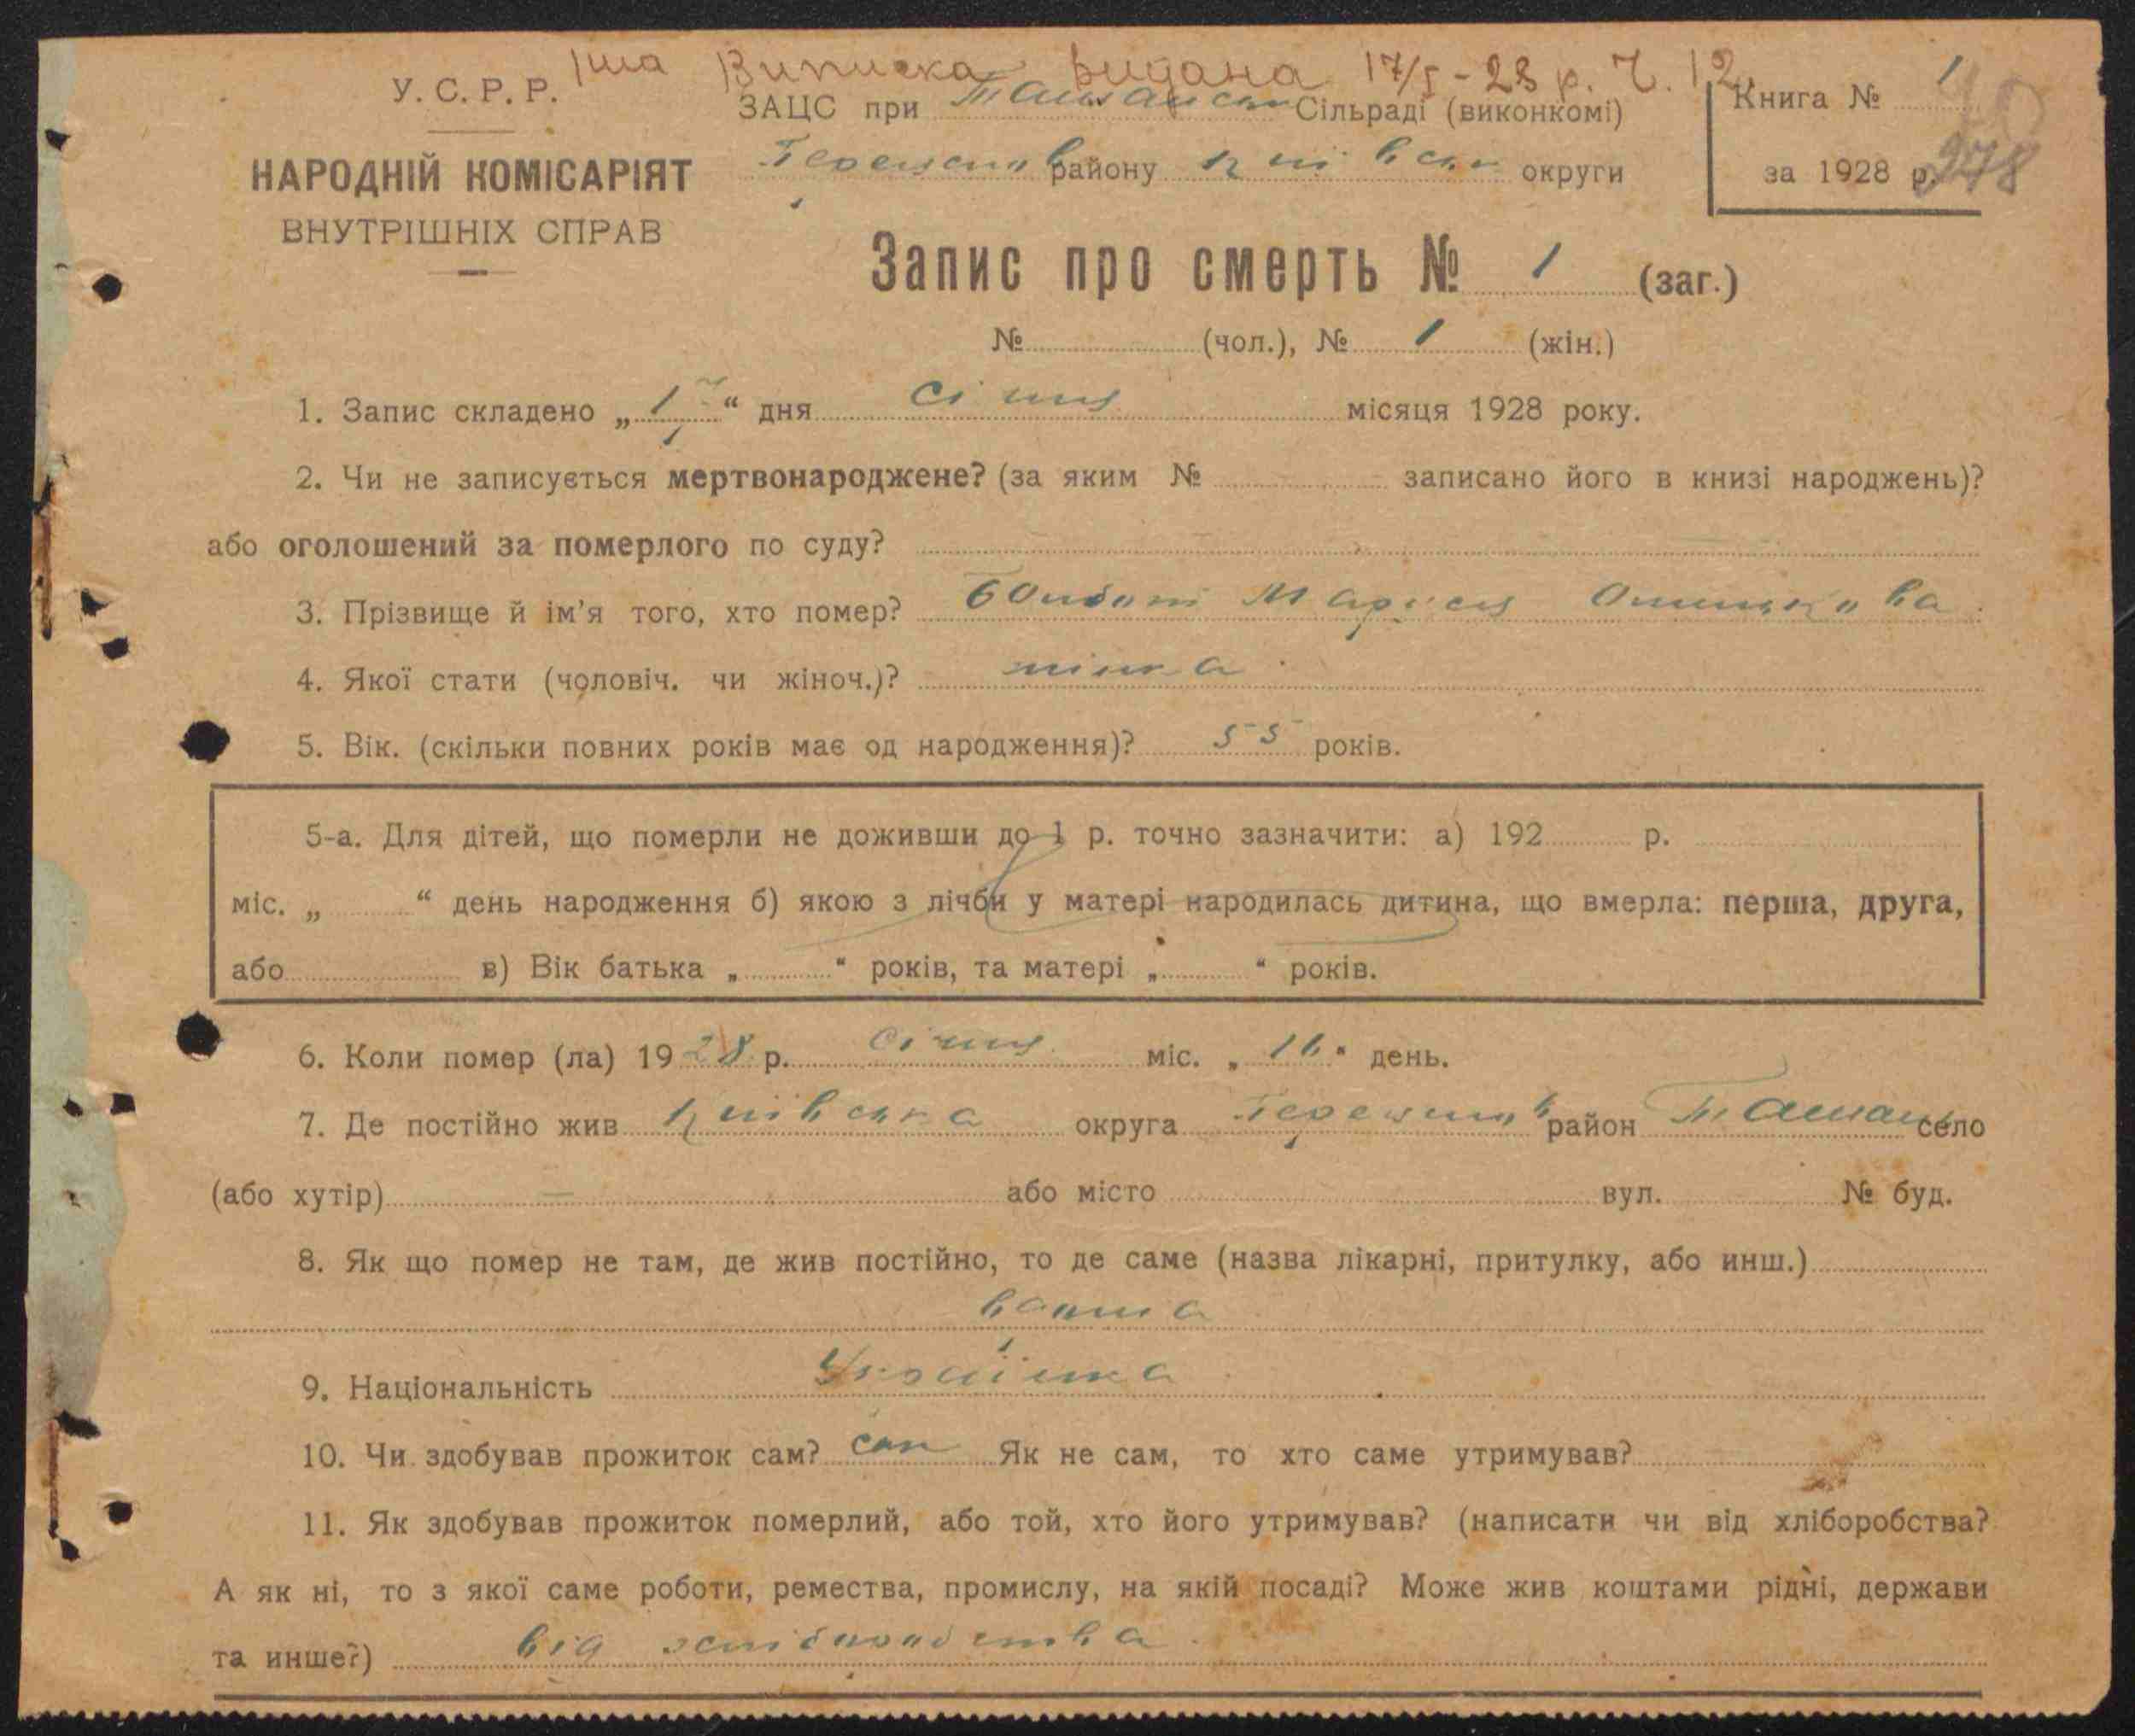 Виписка видана 17/I-28 р. Ч. 12
У. С. Р. Р.
ЗАЦС при Ташанськ Сільраді (виконкомі)
Книга № 1
НАРОДНІЙ КОМІСАРІЯТ
району Київськ округи
за 1928 р. 278
ВНУТРІШНІХ СПРАВ
Запис про смерть № 1 (заг.)
№ (чол.), № 1 (жін.)
1. Запис складено „17“ дня січня місяця 1928 року.
2. Чи не записується мертвонароджене? (за яким № записано його в книзі народжень)?
або оголошений за померлого по суду?
3. Прізвище й ім'я того, хто помер? Маруся
4. Якої стати (чоловіч. чи жіноч.)? жінка
5. Вік. (скільки повних років має од народження)? 55 років.
5-а. Для дітей, що померли не доживши до 1 р. точно зазначити: а) 192 р.
міс. „ “ день народження б) якою з лічби у матері народилась дитина, що вмерла: перша, друга,
або в) Вік батька „ “ років, та матері „ “ років.
6. Коли помер (ла) 1928 р. січня міс. „16“ день.
7. Де постійно жив Київська округа район Ташань село
(або хутір) — або місто вул. № буд.
8. Як що помер не там, де жив постійно, то де саме (назва лікарні, притулку, або инш.)
вдома
9. Національність Українка
10. Чи здобував прожиток сам? сам Як не сам, то хто саме утримував?
11. Як здобував прожиток померлий, або той, хто його утримував? (написати чи від хліборобства?
А як ні, то з якої саме роботи, ремества, промислу, на якій посаді? Може жив коштами рідні, держави
та инше?) від хліборобства